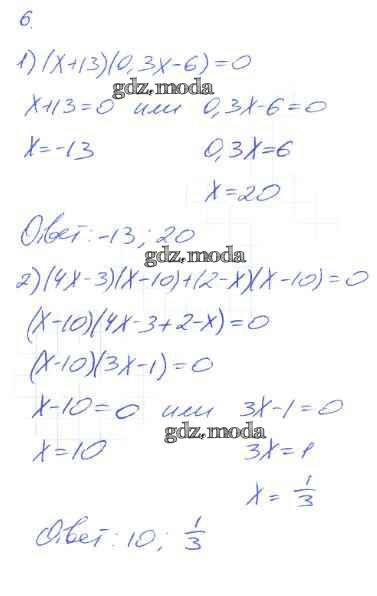 6.
1) (x+13)(0,3x-6)=0
gdz.moda
x+13=0 или 0,3x-6=0
x=-13 0,3x=6
x=20
Ответ: -13; 20
gdz.moda
2) (4x-3)(x-10)+(2-x)(x-10)=0
(x-10)(4x-3+2-x)=0
(x-10)(3x-1)=0
x-10=0 или 3x-1=0
gdz.moda
x=10 3x=1
x=1/3
Ответ: 10; 1/3